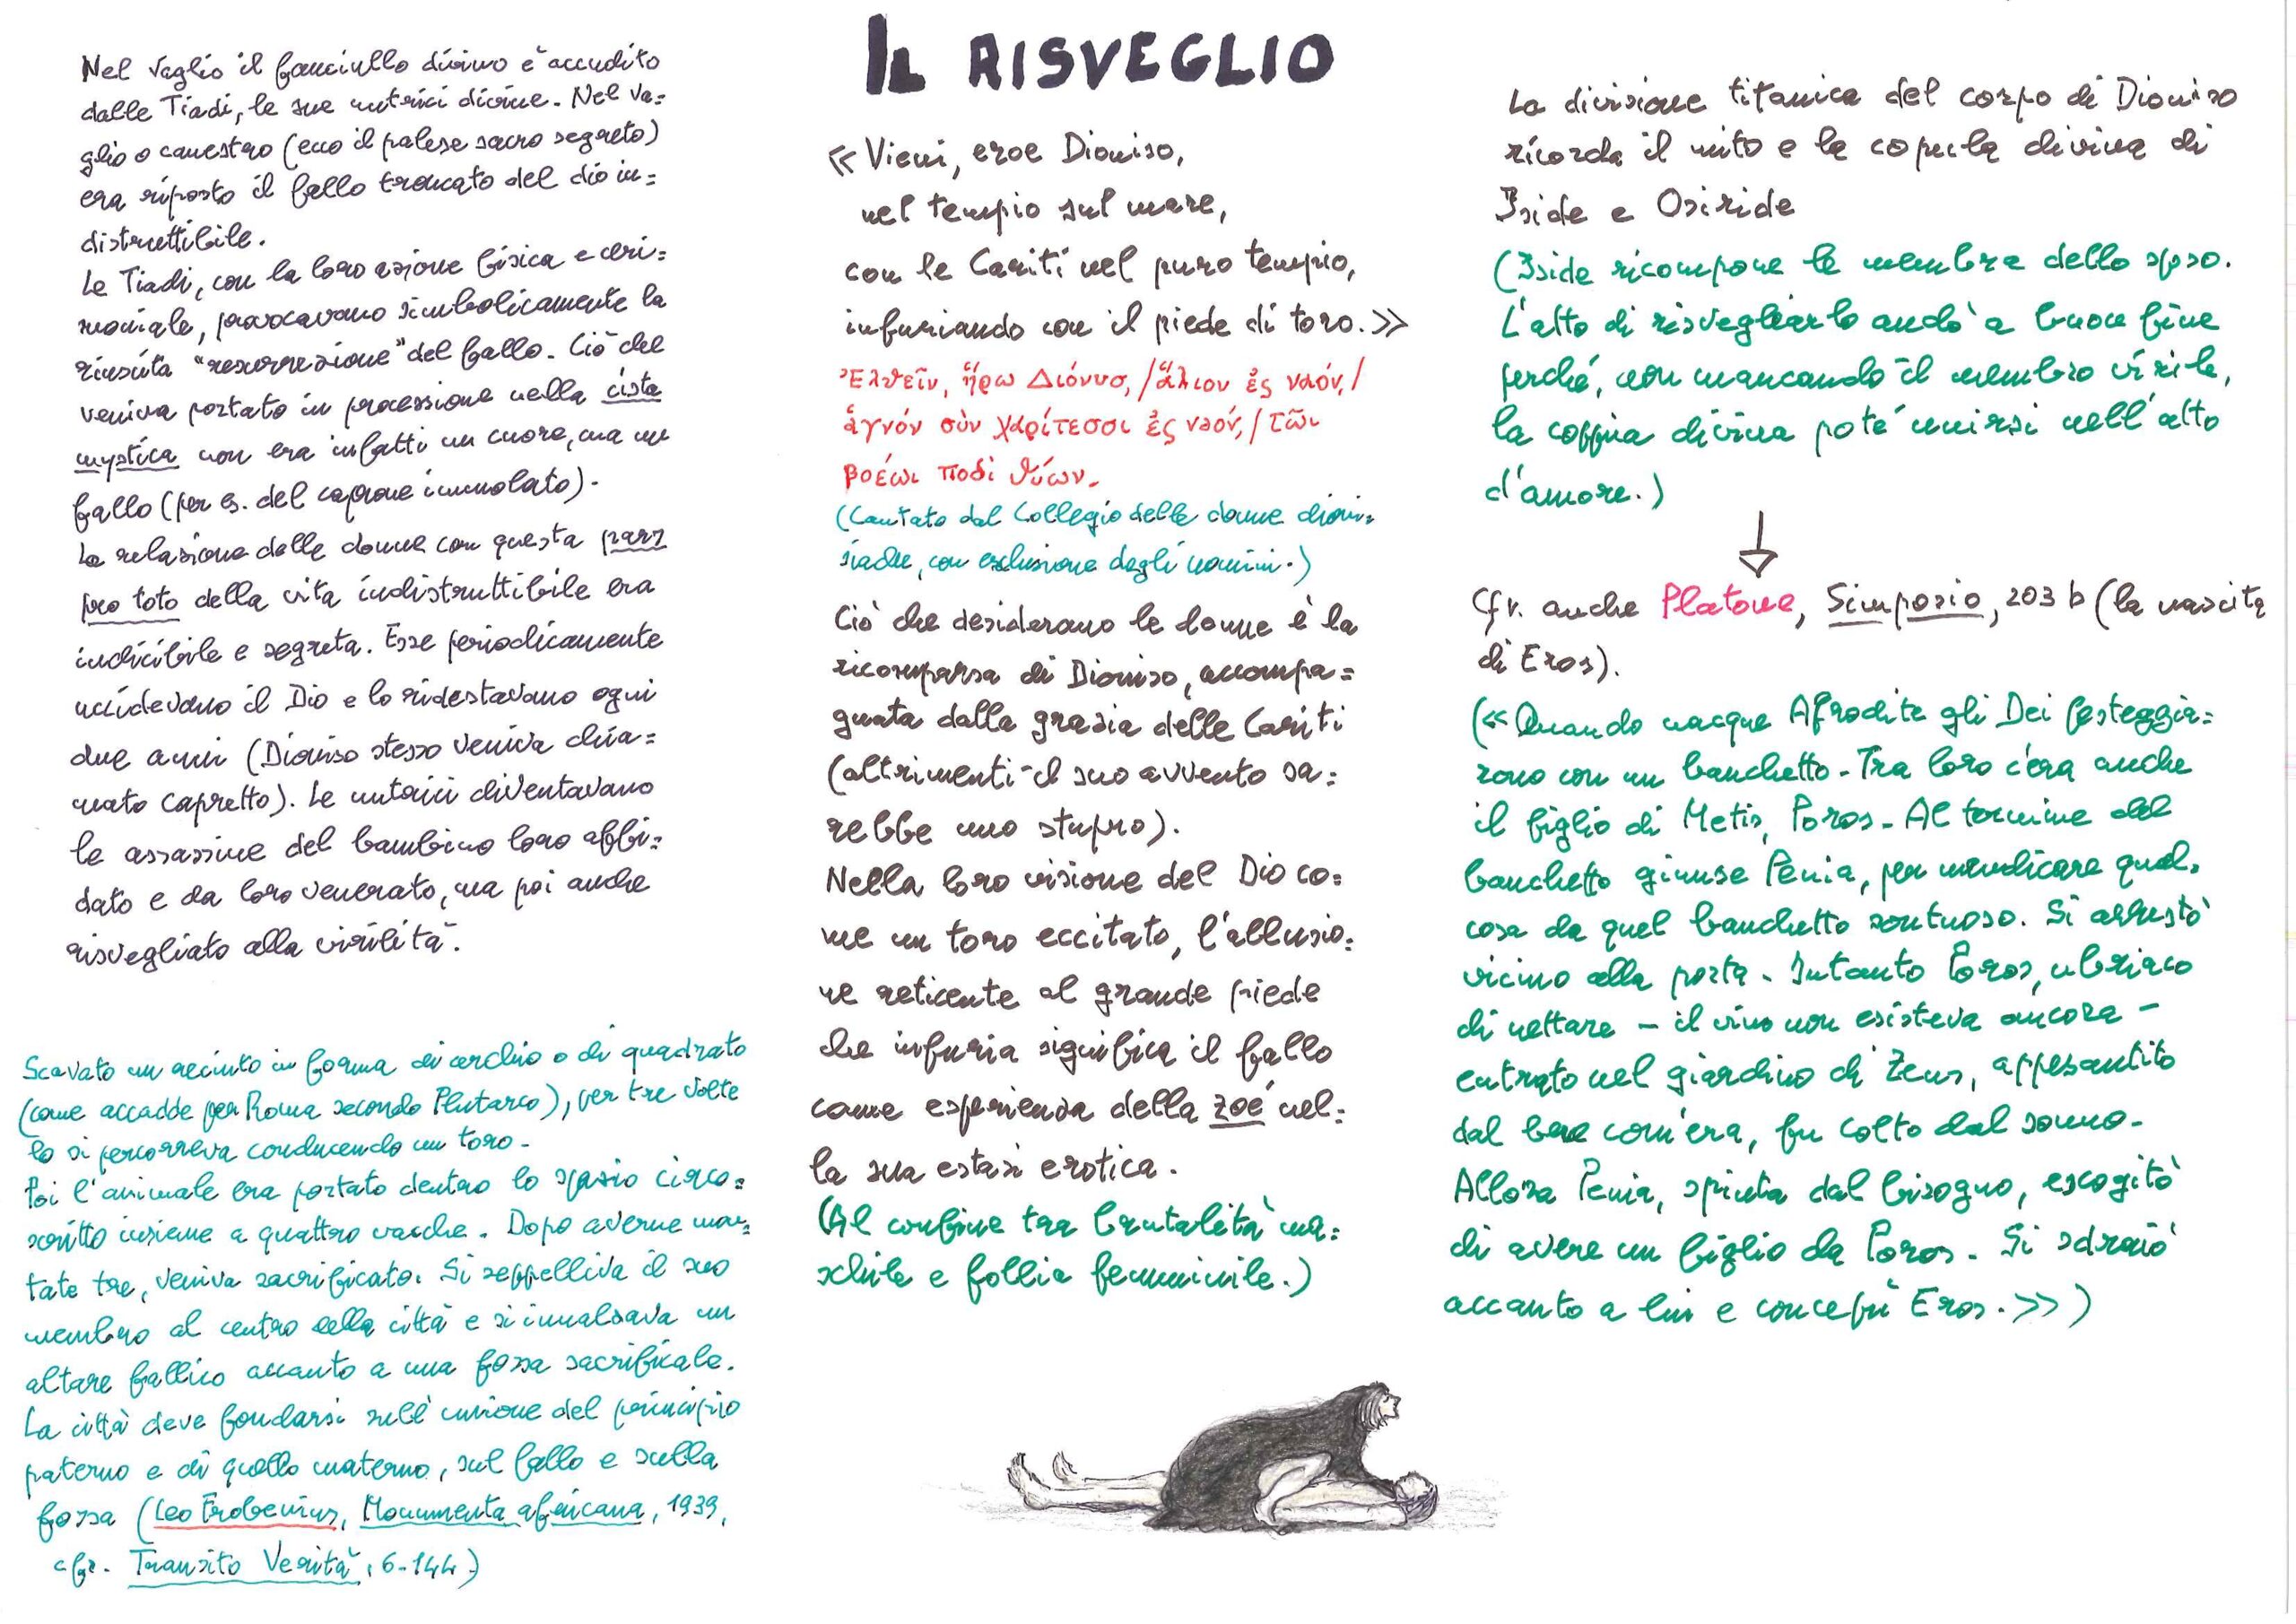 Nel vaglio il fanciullo divino è accudito
dalle Tiadi, le sue nutrici divine. Nel va=
glio o canestro (ecco il palese sacro segreto)
era riposto il fallo troncato del dio in=
distruttibile.
Le Tiadi, con la loro azione fisica e ceri=
moniale, provocavano simbolicamente la
riuscita "resurrezione" del fallo. Ciò che
veniva portato in processione nella cista
mystica non era infatti un cuore, ma un
fallo (per es. del caprone immolato).
La relazione delle donne con questa pars
pro toto della vita indistruttibile era
indicibile e segreta. Esse periodicamente
uccidevano il Dio e lo ridestavano ogni
due anni (Dioniso stesso veniva chia=
mato Capretto). Le nutrici diventavano
le assassine del bambino loro affi=
dato e da loro venerato, ma poi anche
risvegliato alla virilità.
Scavato un recinto in forma di cerchio o di quadrato
(come accadde per Roma secondo Plutarco), per tre volte
lo si percorreva conducendo un toro.
Poi l'animale era portato dentro lo spazio circo=
scritto insieme a quattro vacche. Dopo averne mon=
tate tre, veniva sacrificato. Si seppelliva il suo
membro al centro della città e si innalzava un
altare fallico accanto a una fossa sacrificale.
La città deve fondarsi sull'unione del principio
paterno e di quello materno, sul fallo e sulla
fossa (Leo Frobenius, Monumenta africana, 1939,
cfr. Transito Verità, 6-144)
IL RISVEGLIO
«Vieni, eroe Dioniso,
nel tempio sul mare,
con le Cariti nel puro tempio,
infuriando con il piede di toro.»
Ἐλθεῖν, ἥρω Διόνυσ, /ἅλιον ἐς ναόν,/
ἁγνόν σὺν χαρίτεσσι ἐς ναόν,/ τῶι
βοέωι ποδὶ θύων.
(Cantato dal Collegio delle donne dioni=
siache, con esclusione degli uomini.)
Ciò che desiderano le donne è la
ricomparsa di Dioniso, accompa=
gnata dalla grazia delle Cariti
(altrimenti il suo avvento sa=
rebbe uno stupro).
Nella loro visione del Dio co=
me un toro eccitato, l'allusio=
ne reticente al grande piede
che infuria significa il fallo
come esperienza della zoé nel=
la sua estasi erotica.
(Al confine tra brutalità ma=
schile e follia femminile.)
La divisione titanica del corpo di Dioniso
ricorda il mito e la copula divina di
Iside e Osiride
(Iside ricompone le membra dello sposo.
L'atto di risvegliarlo andò a buon fine
perché, non mancando il membro virile,
la coppia divina poté unirsi nell'atto
d'amore.)
Cfr. anche Platone, Simposio, 203 b (la nascita
di Eros).
(«Quando nacque Afrodite gli Dei festeggia=
rono con un banchetto. Tra loro c'era anche
il figlio di Metis, Poros. Al termine del
banchetto giunse Penia, per mendicare qual=
cosa da quel banchetto sontuoso. Si arrestò
vicino alla porta. Intanto Poros, ubriaco
di nettare – il vino non esisteva ancora –
entrato nel giardino di Zeus, appesantito
dal bere com'era, fu colto dal sonno.
Allora Penia, spinta dal bisogno, escogitò
di avere un figlio da Poros. Si sdraiò
accanto a lui e concepì Eros.»)